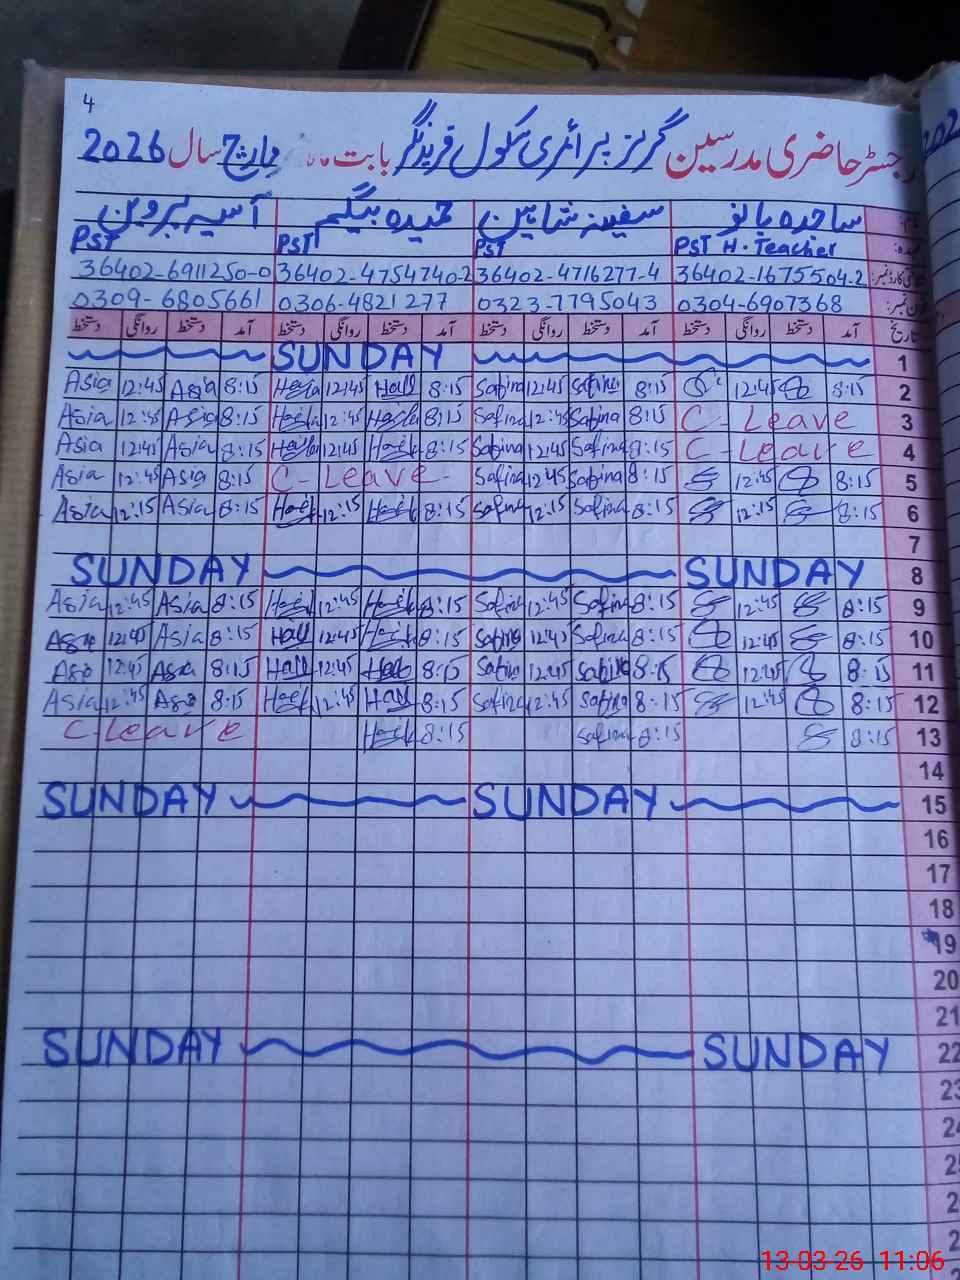 4
رجسٹر حاضری مدرسین گرلز پرائمری سکول فریدنگر بابت ماہ مارچ سال 2026
ساجدہ بانو سفینہ شاہین حمیدہ بیگم آسیہ پروین
PST H. Teacher PST PST PST
36402-1675504-2 36402-4716277-4 36402-4754740-2 36402-6911250-0
0304-6907368 0323-7795043 0306-4821277 0309-6805661
تاریخ آمد دستخط روانگی دستخط آمد دستخط روانگی دستخط آمد دستخط روانگی دستخط آمد دستخط روانگی دستخط
1 SUNDAY
2 8:15 12:45 8:15 Safina 12:45 Safina 8:15 12:45 8:15 Asia 12:45 Asia
3 C-Leave 8:15 Safina 12:45 Safina 8:15 12:45 8:15 Asia 12:45 Asia
4 C-Leave 8:15 Safina 12:45 Safina 8:15 12:45 8:15 Asia 12:45 Asia
5 8:15 12:45 8:15 Safina 12:45 Safina C-Leave 8:15 Asia 12:45 Asia
6 8:15 12:15 8:15 Safina 12:15 Safina 8:15 12:15 8:15 Asia 12:15 Asia
7
8 SUNDAY SUNDAY
9 8:15 12:45 8:15 Safina 12:45 Safina 8:15 12:45 8:15 Asia 12:45 Asia
10 8:15 12:45 8:15 Safina 12:45 Safina 8:15 12:45 8:15 Asia 12:45
11 8:15 12:45 8:15 Safina 12:45 8:15 12:45 8:15 12:45
12 8:15 12:45 8:15 Safina 12:45 Safina 8:15 12:45 8:15 12:45 Asia
13 8:15 8:15 Safina 8:15 C Leave
14
15 SUNDAY SUNDAY
16
17
18
19
20
21
22 SUNDAY SUNDAY
13-03-26 11:06